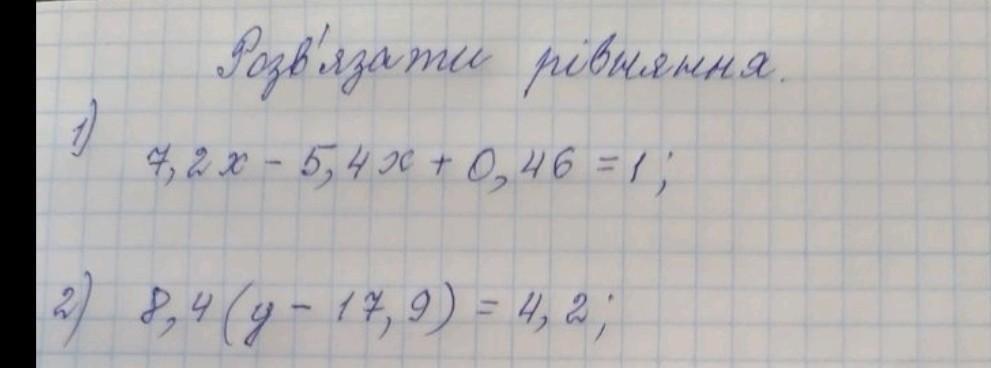 Розв'язати рівняння.
1)
7,2x - 5,4x + 0,46 = 1;
2) 8,4(y - 17,9) = 4,2;